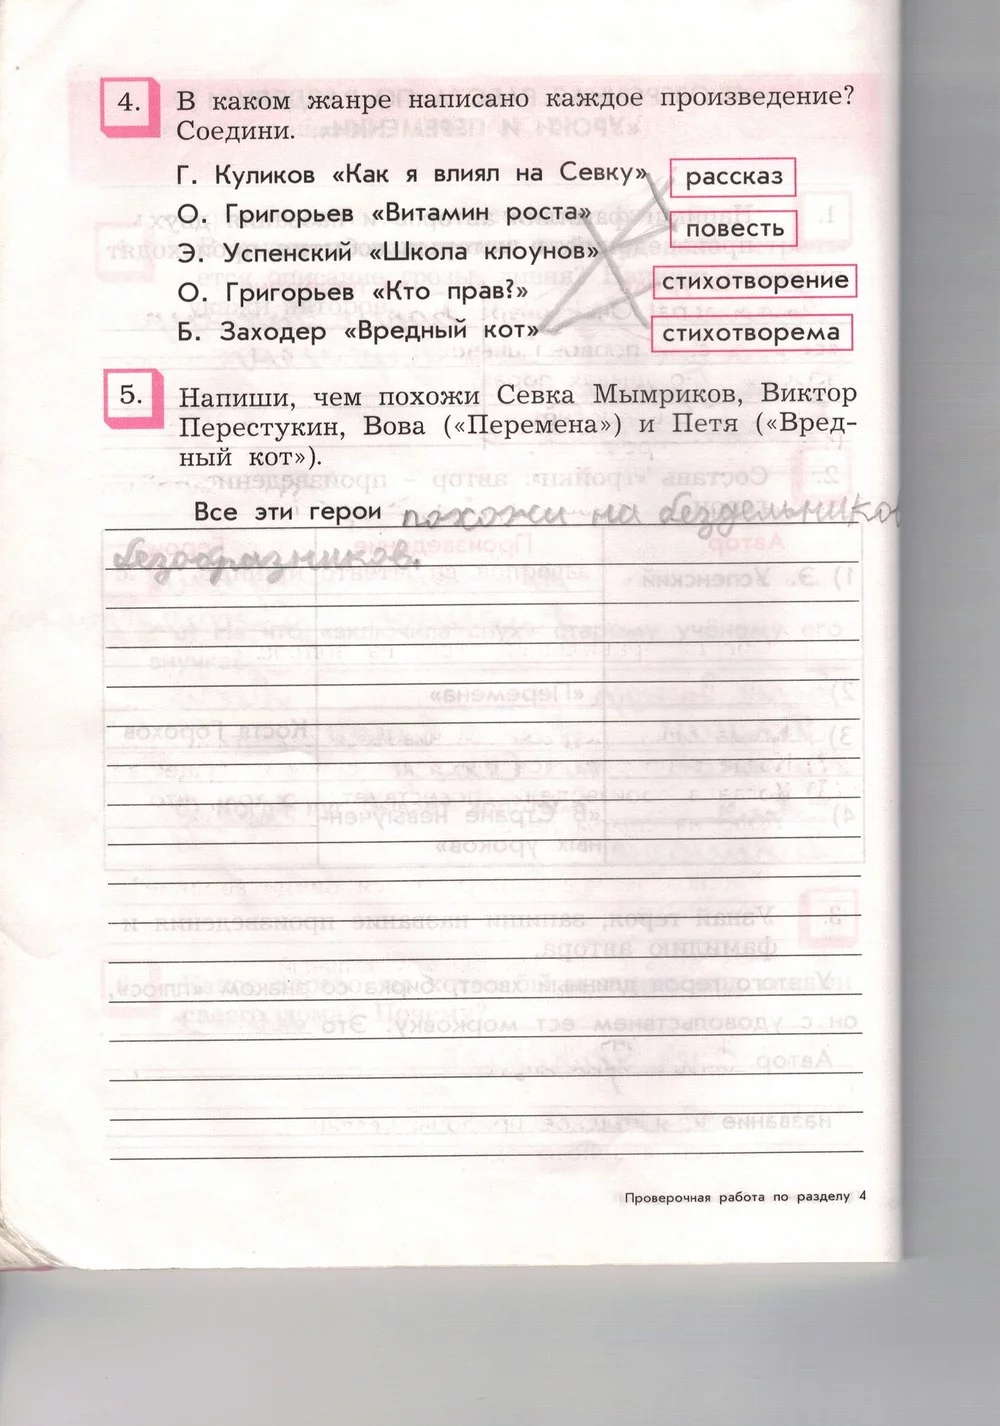 4. В каком жанре написано каждое произведение?
Соедини.
Г. Куликов «Как я влиял на Севку»
рассказ
О. Григорьев «Витамин роста»
повесть
Э. Успенский «Школа клоунов»
стихотворение
О. Григорьев «Кто прав?»
Б. Заходер «Вредный кот»
стихотворема
5. Напиши, чем похожи Севка Мымриков, Виктор
Перестукин, Вова («Перемена») и Петя («Вред-
ный кот»).
Все эти герои похожи на бездельнико
безобразников.
Проверочная работа по разделу 4